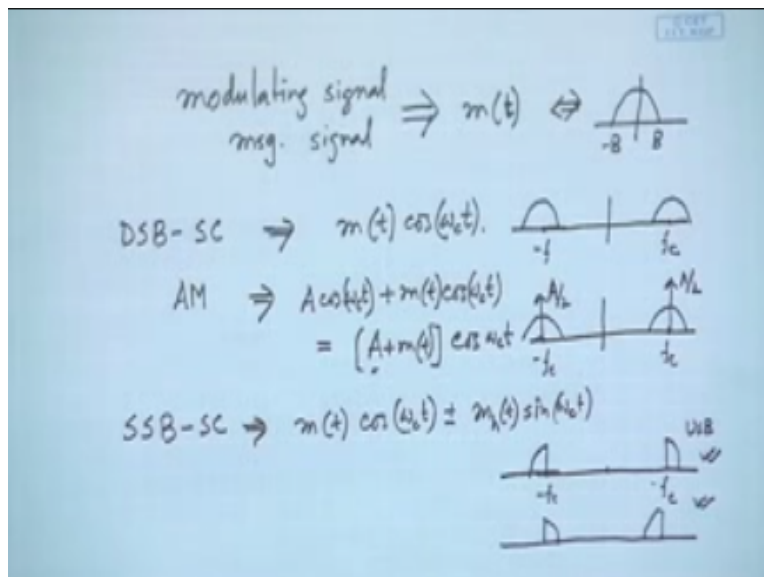 modulating signal
msg. signal
⇒ m(t) ⇔
-B B
DSB-SC ⇒ m(t) cos(ωct).
-f fc
AM ⇒ A cos(ωct) + m(t) cos(ωct)
= [A+m(t)] cos ωct
A/2 A/2
-fc fc
SSB-SC ⇒ m(t) cos(ωct) ± mh(t) sin(ωct)
USB
-fc -fc